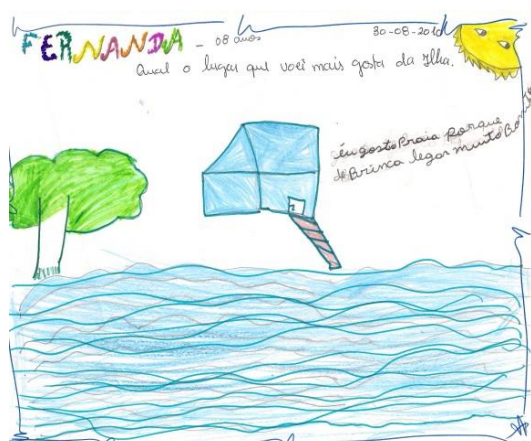 FERNANDA - 08 anos 30-08-2010
Qual o lugar que você mais gosta da Ilha.
éu gosto Praia porque
de Brinca legar muito Bonito